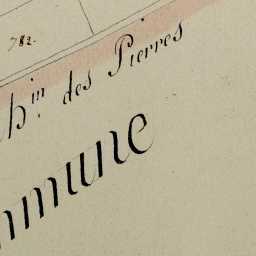 782.
hin des Pierres
mmune